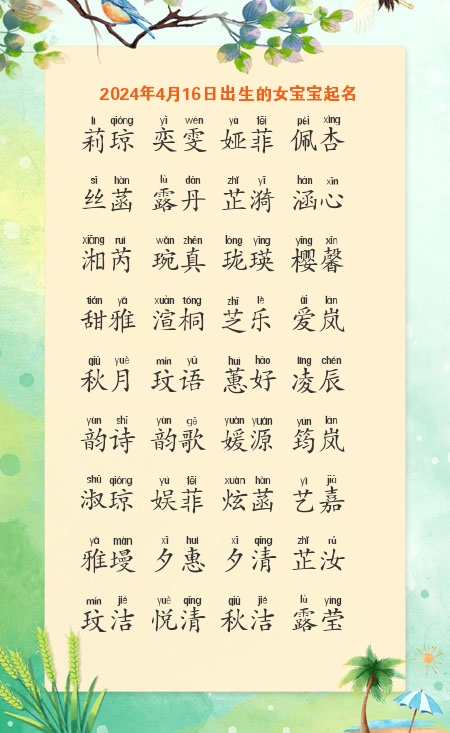 2024年4月16日出生的女宝宝起名
lì qióng yì wén yà fēi pèi xìng
莉琼 奕雯 娅菲 佩杏
sī hàn lù dān zhǐ yī hán xīn
丝菡 露丹 芷漪 涵心
xiāng ruì wǎn zhēn lóng yīng yīng xīn
湘芮 琬真 珑瑛 樱馨
tián yǎ xuàn tóng zhī lè ài lán
甜雅 渲桐 芝乐 爱岚
qiū yuè mín yǔ huì hǎo líng chén
秋月 玟语 蕙好 凌辰
yùn shī yùn gē yuàn yuán yún lán
韵诗 韵歌 媛源 筠岚
shū qióng yú fēi xuàn hàn yì jiā
淑琼 娱菲 炫菡 艺嘉
yǎ màn xī huì xī qīng zhǐ rǔ
雅墁 夕惠 夕清 芷汝
mín jié yuè qīng qiū jié lù yíng
玟洁 悦清 秋洁 露莹